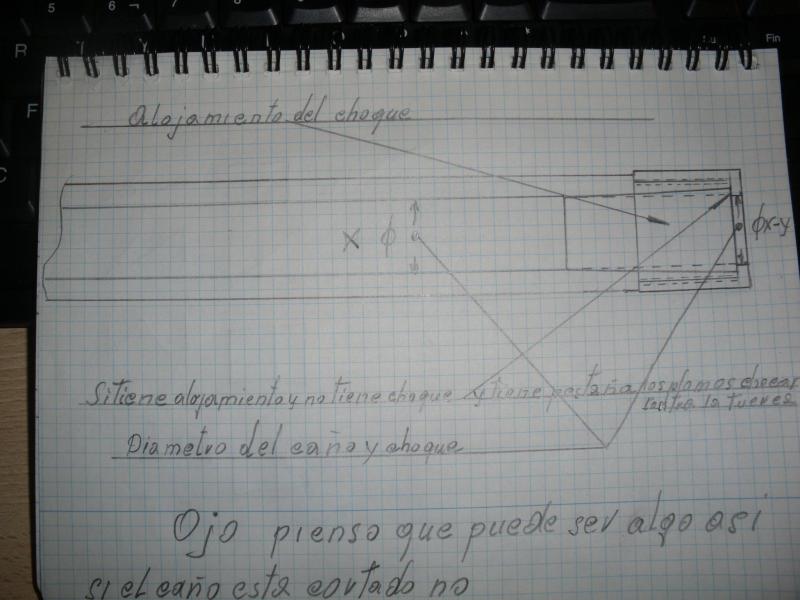 5 6 ¬ 7 8
R
Fin
F
C
Alojamiento del choque
X ϕ
ϕx-y
Si tiene alojamiento y no tiene choque y tiene pestaña los plomos chocan
contra la tuerca
Diametro del caño y choque
Ojo pienso que puede ser algo asi
si el caño esta cortado no